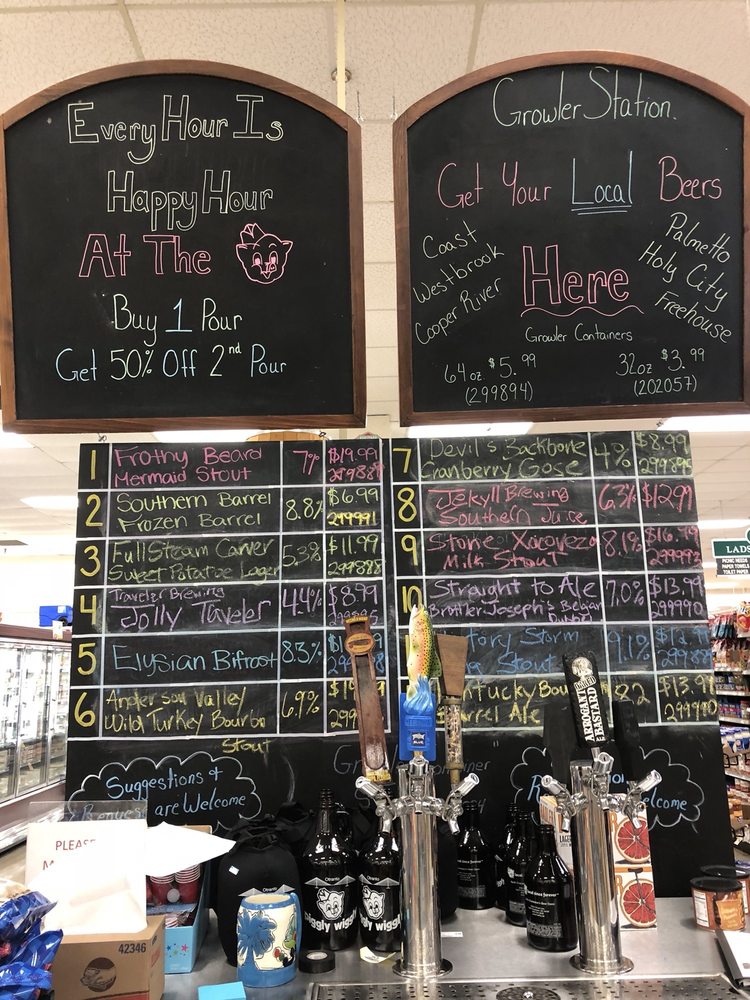 Every Hour Is
Happy Hour
At The
Buy 1 Pour
Get 50% Off 2nd Pour
Growler Station.
Get Your Local Beers
Here
Coast
Westbrook
Cooper River
Palmetto
Holy City
Freehouse
Growler Containers
64 oz. $5.99
(299894)
32oz $3.99
(202057)
1 Frothy Beard 7% $19.99
Mermaid Stout
2 Southern Barrel 8.8% $6.99
Frozen Barrel 299991
3 Full Steam Carver 5.3% $11.99
Sweet Potatoe Lager 299888
4 Traveler Brewing 4.4% $8.99
Jolly Taveler
5 Elysian Bifrost 8.3%
6 Anderson Valley 6.9%
Wild Turkey Bourbo
Stout
7 Devil's Backbone 4% $8.99
Cranberry Gose
8 Jekyll Brewing 6.3% $12.99
Southern Juice
9 Stone Xocoveza 8.1% $16.99
Milk Stout
10 Straight to Ale 7.0% $13.99
Brother Joseph's Belgian 299990
Dubbel
Storm 9.1%
Stout
ntucky Bou 8.2 $13.99
rrel Ale 299990
Suggestions +
Requests are Welcome
lcome
LADS
ARROGANT
BASTARD
BLUE
PLEAS
42346
Piggly Wiggly
iggly wiggly